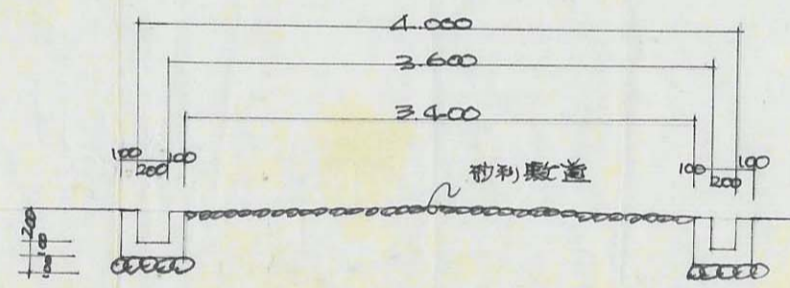 4.000
3.600
3.400
100 200 100
100 200 100
砂利敷道
200
100
100